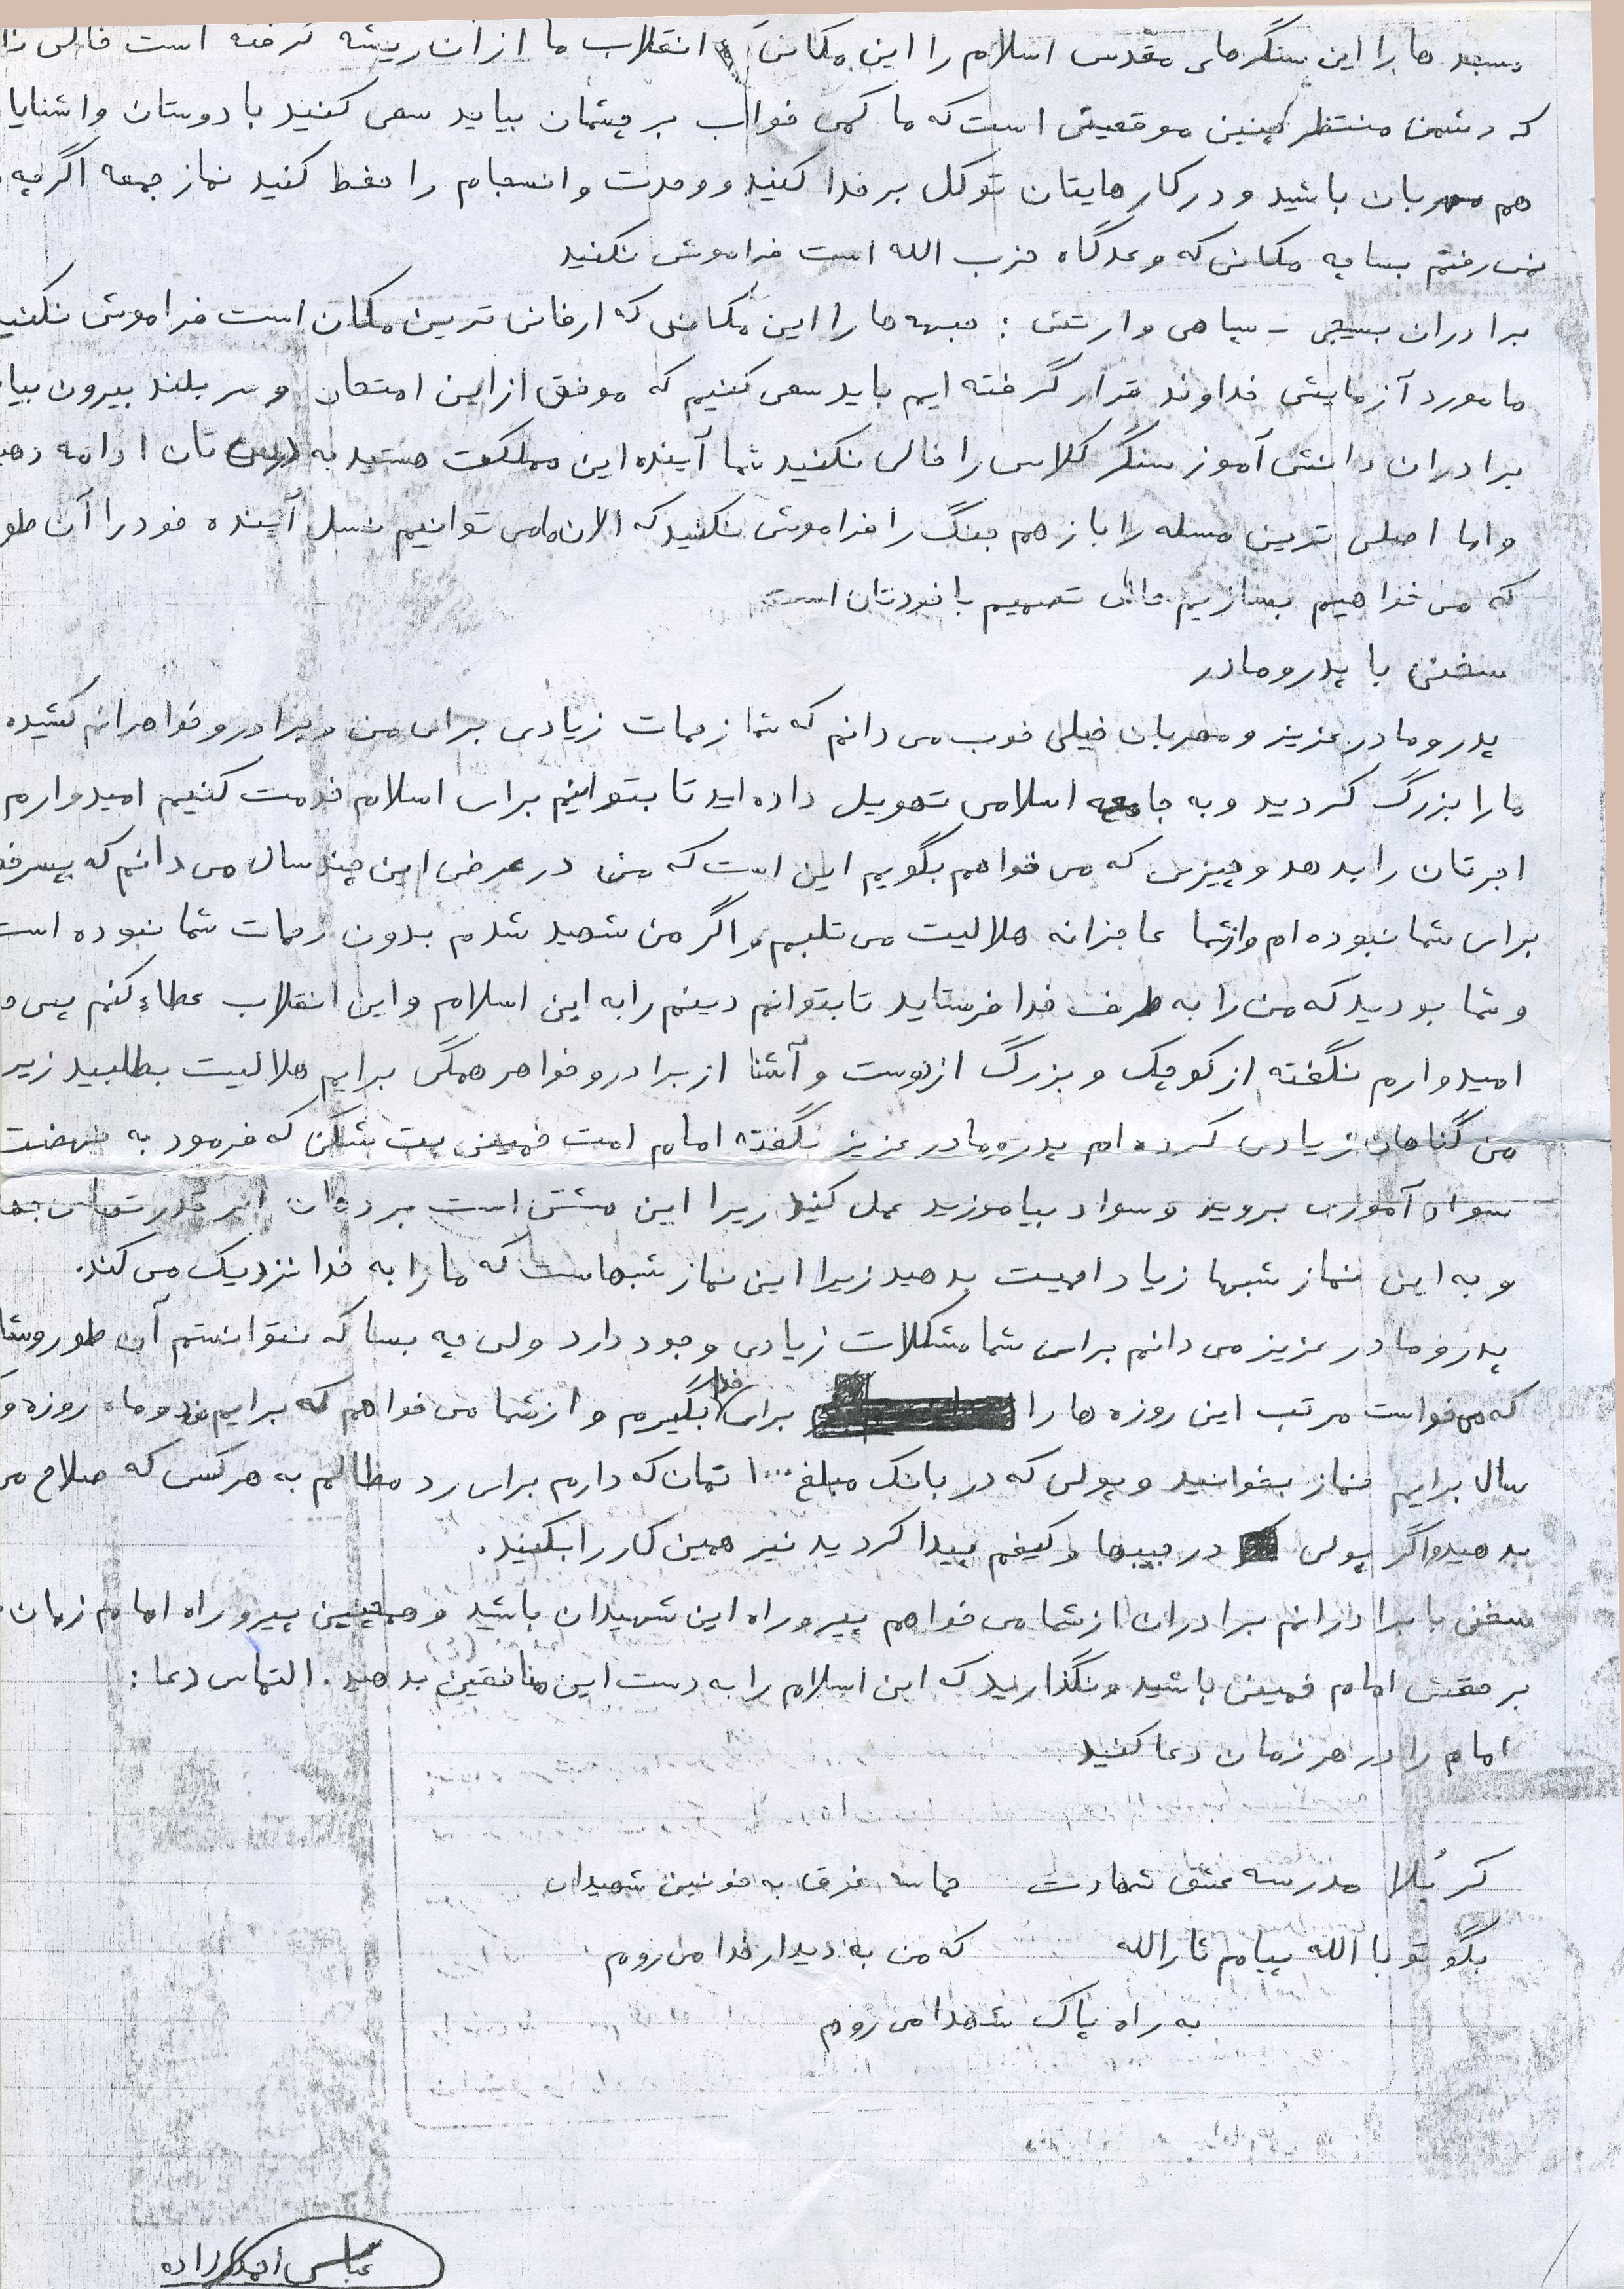 مسجد ها را این سنگرهای مقدس اسلام را این مکانی انقلاب ما از ان ریشه گرفته است خالی
که دشمن منتظر چنین موقعیتی است که ما کمی خواب بر چشمان بیاید سعی کنید با دوستان و اشنایا
هم مهربان باشید و در کارهایتان توکل بر خدا کنید و وحدت و انسجام را حفظ کنید نماز جمعه اگر چه
نمی رفتم بسا چه مکانی که وعدگاه حزب الله است فراموش نکنید
برادران بسیجی - سپاهی و ارتشی : جبهه ها را این مکانی که ارفانی ترین مکان است فراموش نکنید
ما مورد آزمایش خداوند قرار گرفته ایم باید سعی کنیم که موفق از این امتحان و سر بلند بیرون بیا
برادران دانش آموز سنگر کلاس را خالی نکنید شما آینده این مملکت هستید به درس تان ادامه دهید
و اما اصلی ترین مسله را باز هم جنگ را فراموش نکنید که الان ما می توانیم نسل آینده خود را آن طو
که می خواهیم بسازیم تصمیم با خودتان است
سخنی با پدر و مادر
پدر و مادر عزیز و مهربان خیلی خوب می دانم که شما زحمات زیادی برای من و برادر و خواهرانم کشیده
ما را بزرگ کردید و به جامعه اسلامی تحویل داده اید تا بتوانیم برای اسلام خدمت کنیم امیدوارم
اجرتان را بدهد و چیزی که می خواهم بگویم این است که من در عرض این چند سال می دانم که پسر خو
برای شما نبوده ام و از شما عاجزانه حلالیت می تلبم و اگر من شهید شدم بدون زحمات شما نبوده است
و شما بودید که من را به طرف خدا فرستاید تا بتوانم دینم را به این اسلام و این انقلاب عطاء کنم پس
امیدوارم نگفته از کوچک و بزرگ از دوست و آشنا از برادر و خواهر همگی برایم حلالیت بطلبید زیر
من گناهان زیادی کرده ام پدر و مادر عزیز نگفته امام امت خمینی بت شکن که فرمود به نهضت
سواد آموزی بروید و سواد بیاموزید عمل کنید زیرا این مشتی است بر دهان ابر قدرتهای
و به این نماز شبها زیاد اهمیت بدهید زیرا این نماز شبهاست که ما را به خدا نزدیک می کند.
پدر و مادر عزیز می دانم برای شما مشکلات زیادی وجود دارد ولی چه بسا که نتوانستم آن طور و شا
که می خواست مرتب این روزه ها را برای خدا بگیرم و از شما می خواهم که برایم دو ماه روزه و
سال برایم نماز بخوانید و پولی که در بانک مبلغ ۱۰۰۰ تمان که دارم برای رد مظالم به هر کسی که صلاح می
بدهید و اگر پولی در جیبها و کیفم پیدا کردید نیز همین کار را بکنید.
سخنی با برادرانم برادران از شما می خواهم پیرو راه این شهیدان باشید و همچنین پیرو راه امام زمان
بر حقش امام خمینی باشید و نگذارید که این اسلام را به دست این منافقین بدهید. التماس دعا :
امام را در هر زمان دعا کنید
کربُلا مدرسه عشق شهادت حماسه غرق به خونین شهیدان
بگو تو با الله پیام ثارالله که من به دیدار خدا می روم
به راه پاک شهدا می روم
عباس